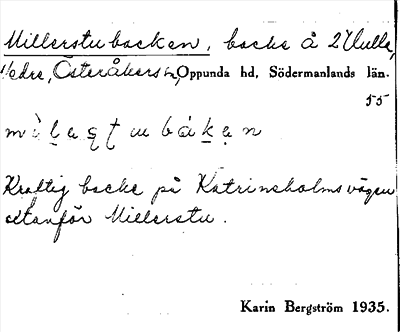 Millerstubacken, backe å 2 Ulla,
Nedre, Österåkers sn, Oppunda hd, Södermanlands län.
55
Kraftig backe på Katrineholmsvägen
utanför Millerstu.
Karin Bergström 1935.